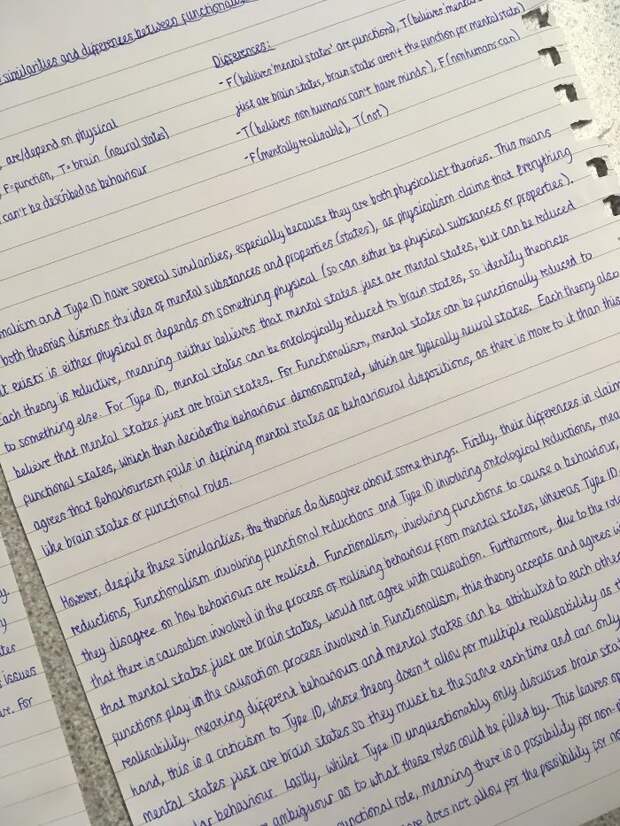 similarities and differences between functionalis
Differences:
- F(believes 'mental states' are functions), T(believes 'mental
just are brain states, brain states aren't the function for mental states)
- T(believes non humans can't have minds), F(nonhumans can)
- F(mentally realisable), T(not)
are/depend on physical
F=function, T=brain (neural states)
can't be described as behaviour
nalism and Type ID have several similarities, especially because they are both physicalist theories. This means
both theories dismiss the idea of mental substances and properties (states), as physicalism claims that everything
t exists is either physical or depends on something physical (so can either be physical substances or properties).
Each theory is reductive, meaning neither believes that mental states just are mental states, but can be reduced
to something else. For Type ID, mental states can be ontologically reduced to brain states, so identity theorists
believe that mental states just are brain states. For Functionalism, mental states can be functionally reduced to
functional states, which then decides the behaviour demonstrated, which are typically neural states. Each theory also
agrees that Behaviourism fails in defining mental states as behavioural dispositions, as there is more to it than this
like brain states or functional roles.
However, despite these similarities, the theories do disagree about some things. Firstly, their differences in claim
reductions, Functionalism involving functional reductions and Type ID involving ontological reductions, mea
they disagree on how behaviours are realised. Functionalism, involving functions to cause a behaviour,
that there is causation involved in the process of realising behaviour from mental states, whereas Type ID
that mental states just are brain states, would not agree with causation. Furthermore, due to the role
functions play in the causation process involved in Functionalism, this theory accepts and agrees wi
realisability, meaning different behaviours and mental states can be attributed to each othe
hand, this is a criticism to Type ID, whose theory doesn't allow for multiple realisability as th
mental states just are brain states so they must be the same each time and can only
lar behaviour. Lastly, whilst Type ID unquestionably only discusses brain stat
ambiguous as to what these roles could be filled by. This leaves op
unctional role, meaning there is a possibility for non-p
does not allow for the possibility for no
issues
For